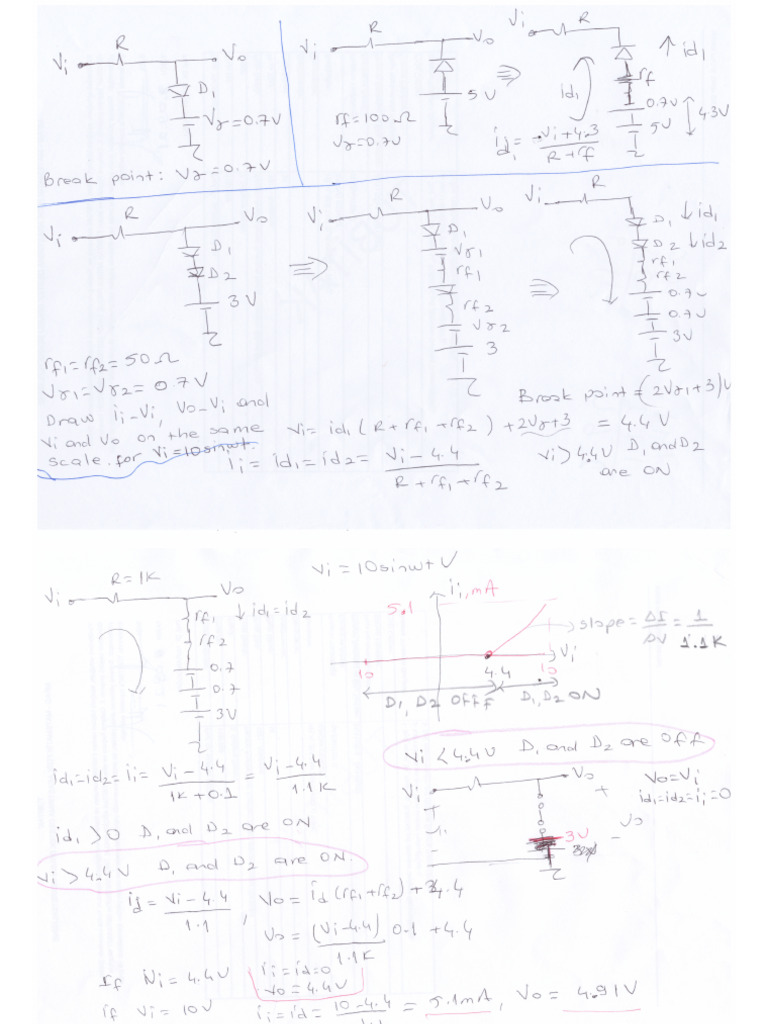 R
Vi
Vo
D1
Vγ = 0.7V
Break point: Vγ = 0.7V
R
Vi
Vo
5V
rf = 100Ω
Vγ = 0.7V
⇒
Vi
R
↑ id1
rf
id1
0.7V
5V
4.3V
id1 = - Vi + 4.3 / R + rf
R
Vi
Vo
D1
D2
3V
rf1 = rf2 = 50Ω
Vγ1 = Vγ2 = 0.7V
Draw ii-Vi, Vo-Vi and
Vi and Vo on the same
scale for Vi = 10sinwt.
⇒
R
Vi
Vo
D1
Vγ1
rf1
rf2
Vγ2
3
⇒
Vi
R
D1 ↓ id1
D2 ↓ id2
rf1
rf2
0.7V
0.7V
3V
Vi = id1 (R + rf1 + rf2) + 2Vγ+3
Ii = id1 = id2 = Vi - 4.4 / R + rf1 + rf2
Break point = (2Vγ1 + 3)V
= 4.4V
Vi > 4.4V D1 and D2
are ON
Vi = 10sinwt V
R = 1K
Vi
Vo
rf1 ↓ id1 = id2
rf2
0.7
0.7
3V
ii, mA
5.1
slope = ΔI / ΔV = 1 / 1.1K
Vi
10
4.4
10
D1, D2 OFFF
D1, D2 ON
Vi < 4.4V D1 and D2 are OFF
id1 = id2 = ii = Vi - 4.4 / 1K + 0.1 = Vi - 4.4 / 1.1K
id1 > 0 D1 and D2 are ON
Vi > 4.4V D1 and D2 are ON.
Vi
Vo
+
Vo = Vi
id1 = id2 = ii = 0
Vo
-
3V
id = Vi - 4.4 / 1.1 , Vo = id (rf1 + rf2) + 4.4
Vo = (Vi - 4.4) / 1.1K 0.1 + 4.4
If Vi = 4.4V ii = id = 0
Vo = 4.4V
if Vi = 10V ii = id = 10 - 4.4 / 1.1 = 5.1mA, Vo = 4.91V